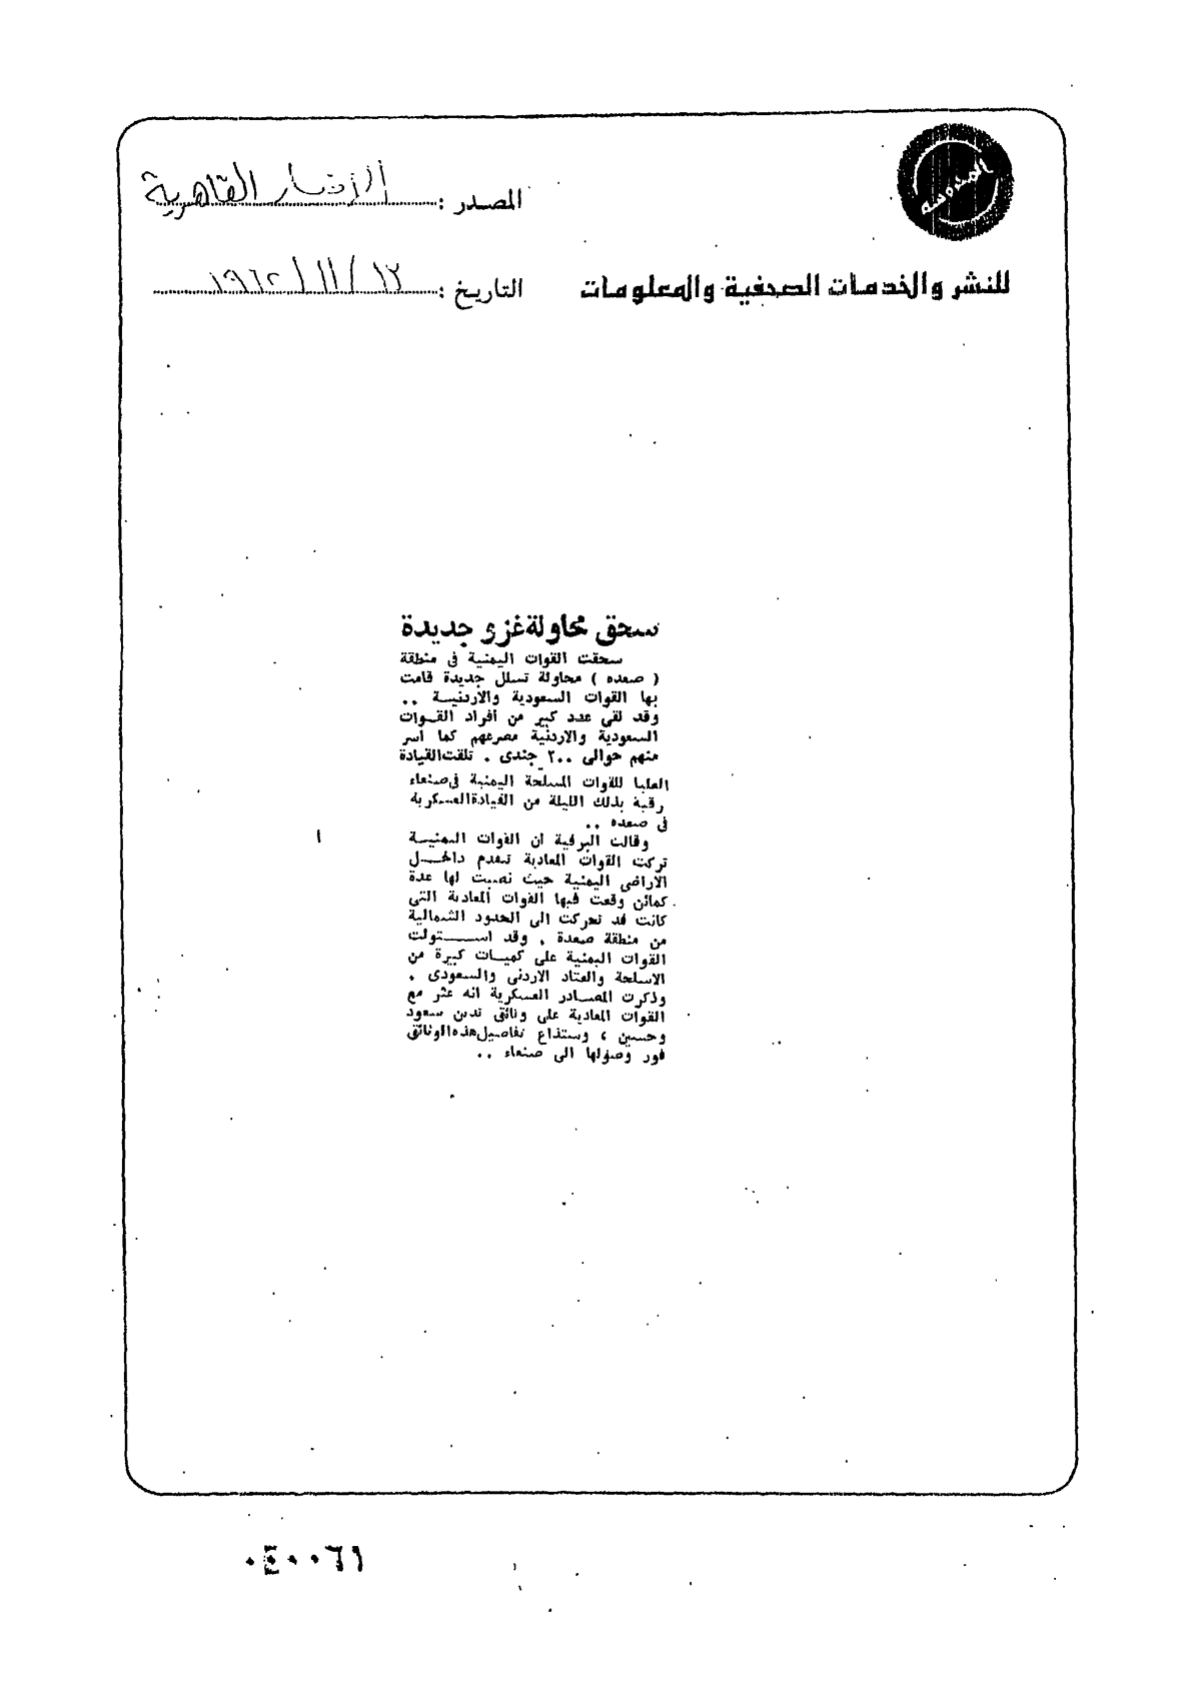 المحروسة
المصدر : الأخبار القاهرية
للنشر والخدمات الصحفية والمعلومات
التاريخ : ١٢ / ١١ / ١٩٦٢
سحق محاولة غزو جديدة
سحقت القوات اليمنية فى منطقة
( صعده ) محاولة تسلل جديدة قامت
بها القوات السعودية والاردنيـة ..
وقد لقى عدد كبير من أفراد القـوات
السعودية والاردنية مصرعهم كما أسر
منهم حوالى ٢٠٠ جندى . تلقت القيادة
العليا للقوات المسلحة اليمنية فى صنعاء
رقية بذلك الليلة من القيادة العسكرية
فى صعده ..
وقالت البرقية ان القوات اليمنيـة
تركت القوات المعادية تتقدم داخـل
الأراضى اليمنية حيث نصبت لها عدة
كمائن وقعت فيها القوات المعادية التى
كانت قد تحركت الى الحدود الشمالية
من منطقة صعدة . وقد استـولت
القوات اليمنية على كميـات كبيرة من
الاسلحة والعتاد الاردنى والسعودى .
وذكرت المصـادر العسكرية انه عثر مع
القوات المعادية على وثائق تدين سعود
وحسين ، وستذاع تفاصيل هذه الوثائق
فور وصولها الى صنعاء ..
٠٤٠٠٦١